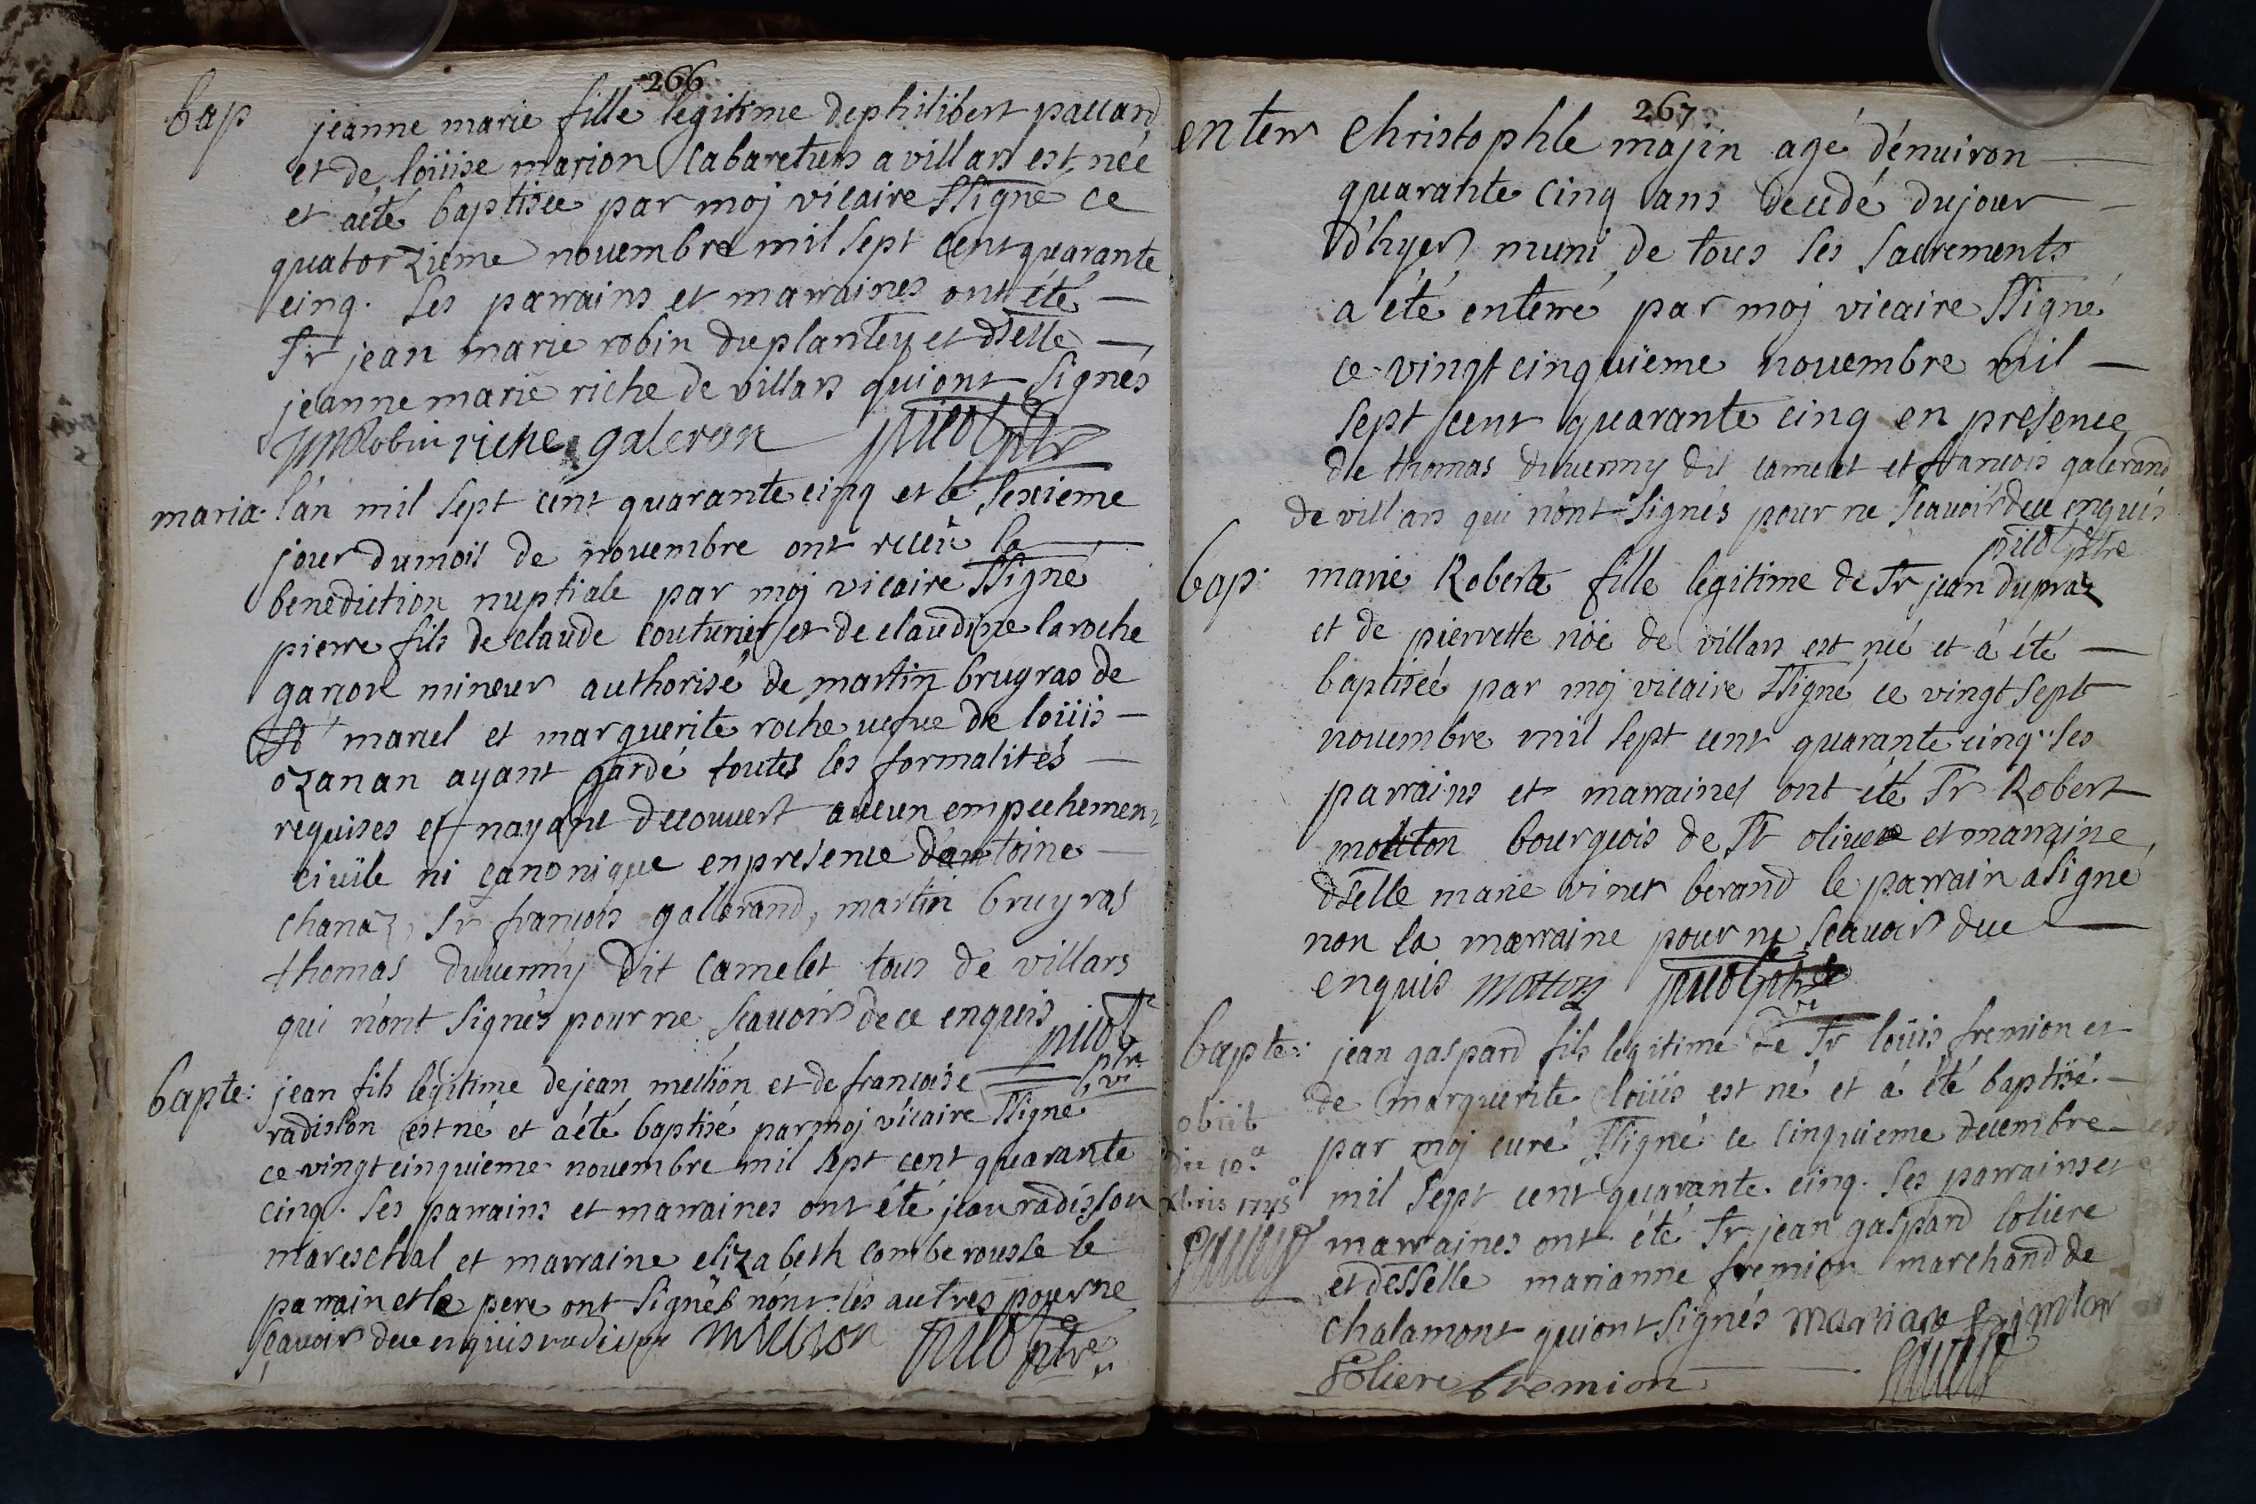 266
bap
jeanne marie fille legitime dephilibert pauard
et de loüise marion cabaretiers a villars est née
et aété baptisée par moj vicaire ssigné ce
quatorzieme nouembre mil sept cent quarante
cinq. ses parrains et marraines ont été
sr jean marie robin duplantey et dselle
jeanne marie riche de villars quiont signés
jmRobin riche galeran pitot ptre
maria. l'an mil sept cent quarante cinq et le sexieme
jour dumois de nouembre ont receu la
benediction nuptiale par moj vicaire ssigné
pierre fils de claude couturier et de claudine laroche
garcon mineur authorisé de martin brugras de
st marcel et marguerite roche uefue de loüis
ozanan ayant gardé toutes les formalités
requises et nayant decouuert aucun empechement
ciuile ni canonique enpresence d'antoine
chanaz, sr francois gallerand, martin bruyras
thomas duuerny dit camelet tous de villars
qui n'ont signés pour ne scauoir dece enquis
pitot ptre
vi
bapte: jean fils legitime dejean mellion et de francoise
radisson est né et aété baptisé parmoj vicaire ssigné
ce vingt cinquieme nouembre mil sept cent quarante
cinq. ses parrains et marraines ont été jean radisson
mareschal et marraine elizabeth comberousse le
parrain et le pere ont signés nont les autres pour ne
scauoir dece enquis radisson mellion pitot ptre
267
enterr Christophle majin agé d'enuiron
quarante cinq ans decedé dujour
d'hyer muni de tous ses sacrements
a été enterré par moj vicaire ssigné
ce vingt cinquieme nouembre mil
sept cent quarante cinq en presence
de thomas duuerny dit camelet et francois galerand
de villars qui n'ont signés pour ne scauoir dece enquis
pitot ptre
bap. marie Roberte fille legitime de sr jean dupraz
et de pierrette noë de villars est née et a été
baptisée par moj vicaire ssigné ce vingt sept
nouembre mil sept cent quarante cinq. ses
parrains et marraines ont été sr Robert
moliton bourgeois de st oliue et marraine
dselle marie vinet berand le parrain asigné
non la marraine pour ne scauoir dece
enquis pitot ptre
vi
bapte: jean gaspard fils legitime de sr loüis fremion et
de marguerite loüis est né et a été baptisé
par moj curé ssigné ce cinquieme decembre
mil sept cent quarante cinq. ses parrains et
marraines ont été sr jean gaspard loliere
et desselle marianne fremion marchand de
chalamont quiont signés mariane fremion
loliere fremion
obiit
die 10a
xbris 1745